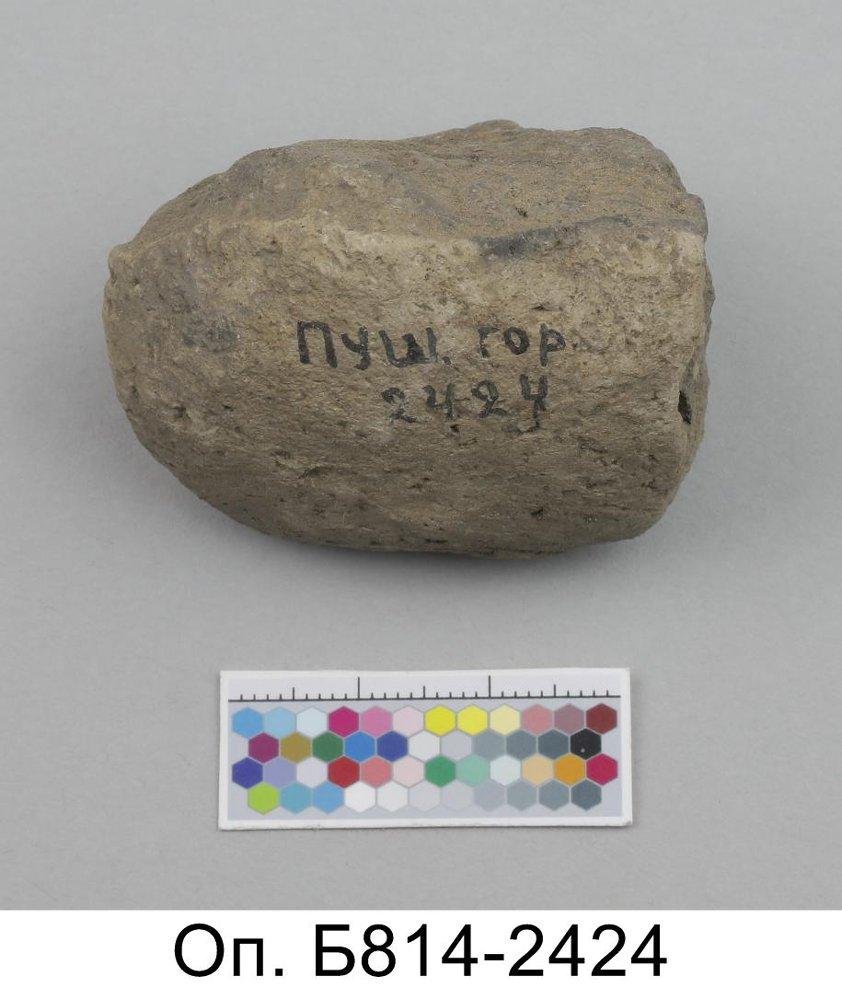 ПУШ. гор
2424
Оп. Б814-2424